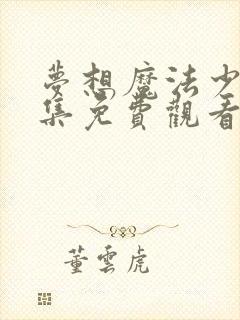 夢想魔法少
集免費觀看
董雲虎